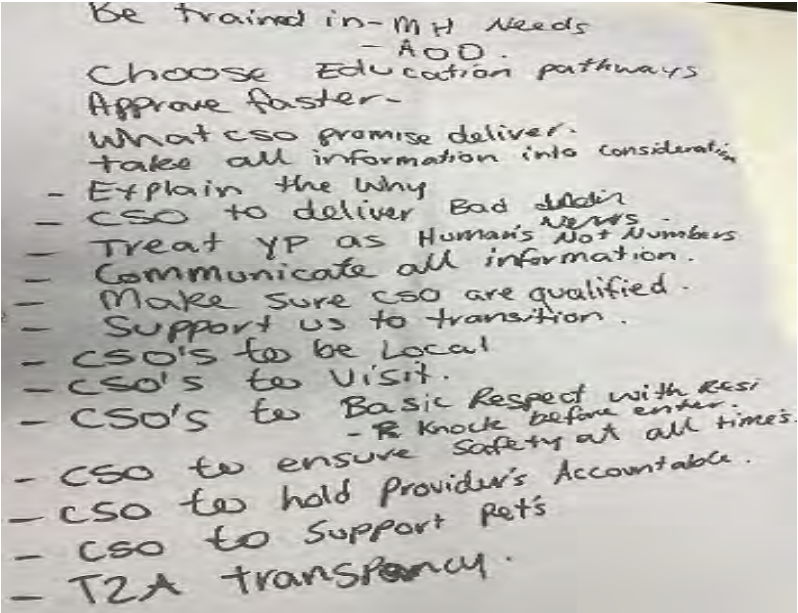 Be trained in - MH Needs
- AOD.
Choose Education pathways
Approve faster -
What cso promise deliver.
take all information into consideration
- Explain the Why
- CSO to deliver Bad
News.
- Treat YP as Human's Not Numbers
- Communicate all information.
- Make sure cso are qualified.
- Support us to transition.
- CSO's to be Local
- CSO's to Visit.
- CSO's to Basic Respect with Resi
- Knock before enter.
- CSO to ensure Safety at all times.
- CSO to hold Provider's Accountable.
- CSO to Support Pet's
- T2A transpancy.